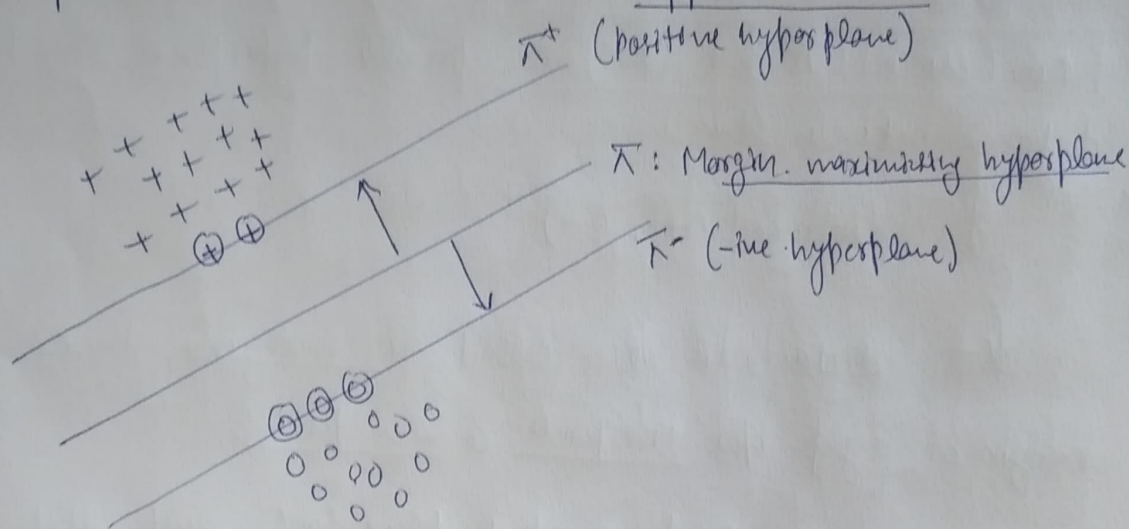 π⁺ (positive hyperplane)
π : Margin. maximizing hyperplane
π⁻ (-ive hyperplane)